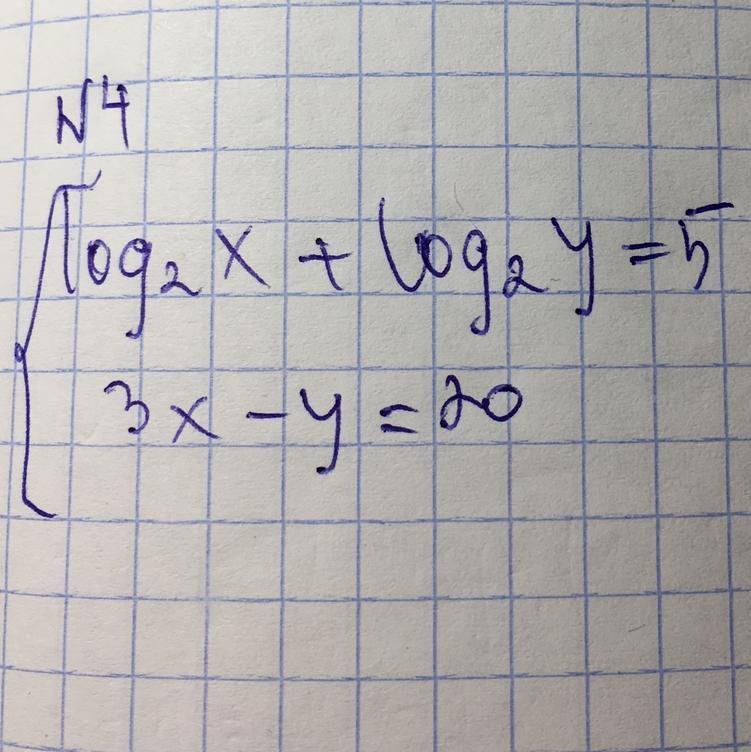 N4
log₂ x + log₂ y = 5
3x - y = 20